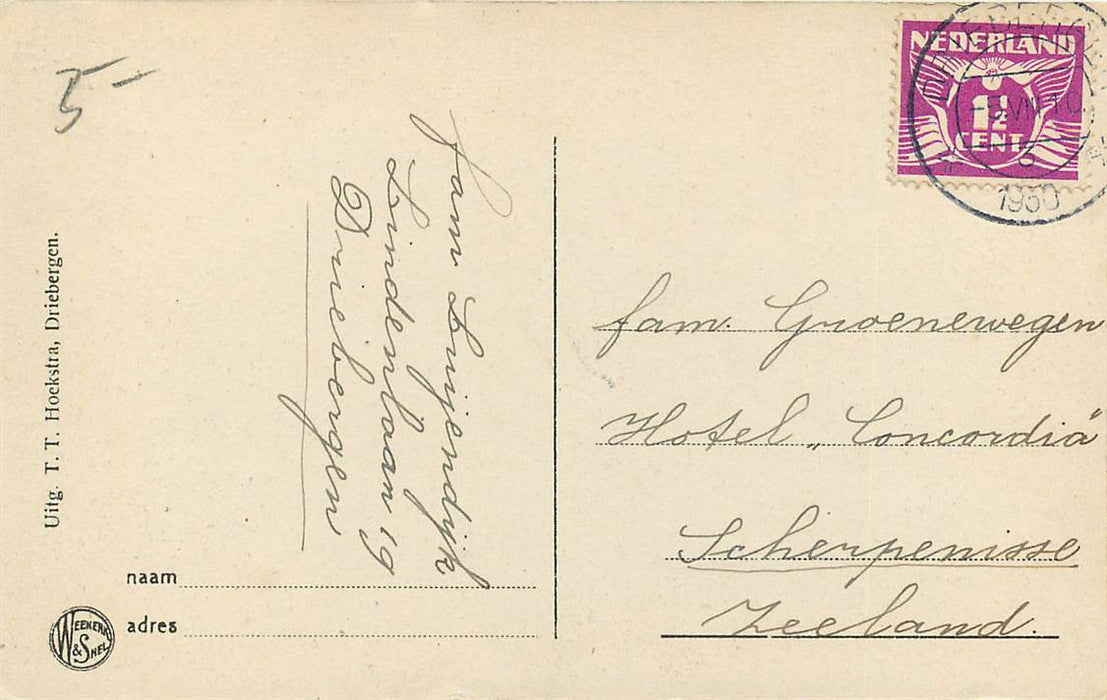 5-
fam Luijendijk
Lindenlaan 19
Driebergen
Uitg. T. T. Hoekstra, Driebergen.
naam
adres
WEEKENK & SNEL
NEDERLAND
1½
CENT
DRIEBERGEN
1930
fam. Groenewegen
Hotel „Concordia"
Scherpenisse
Zeeland.